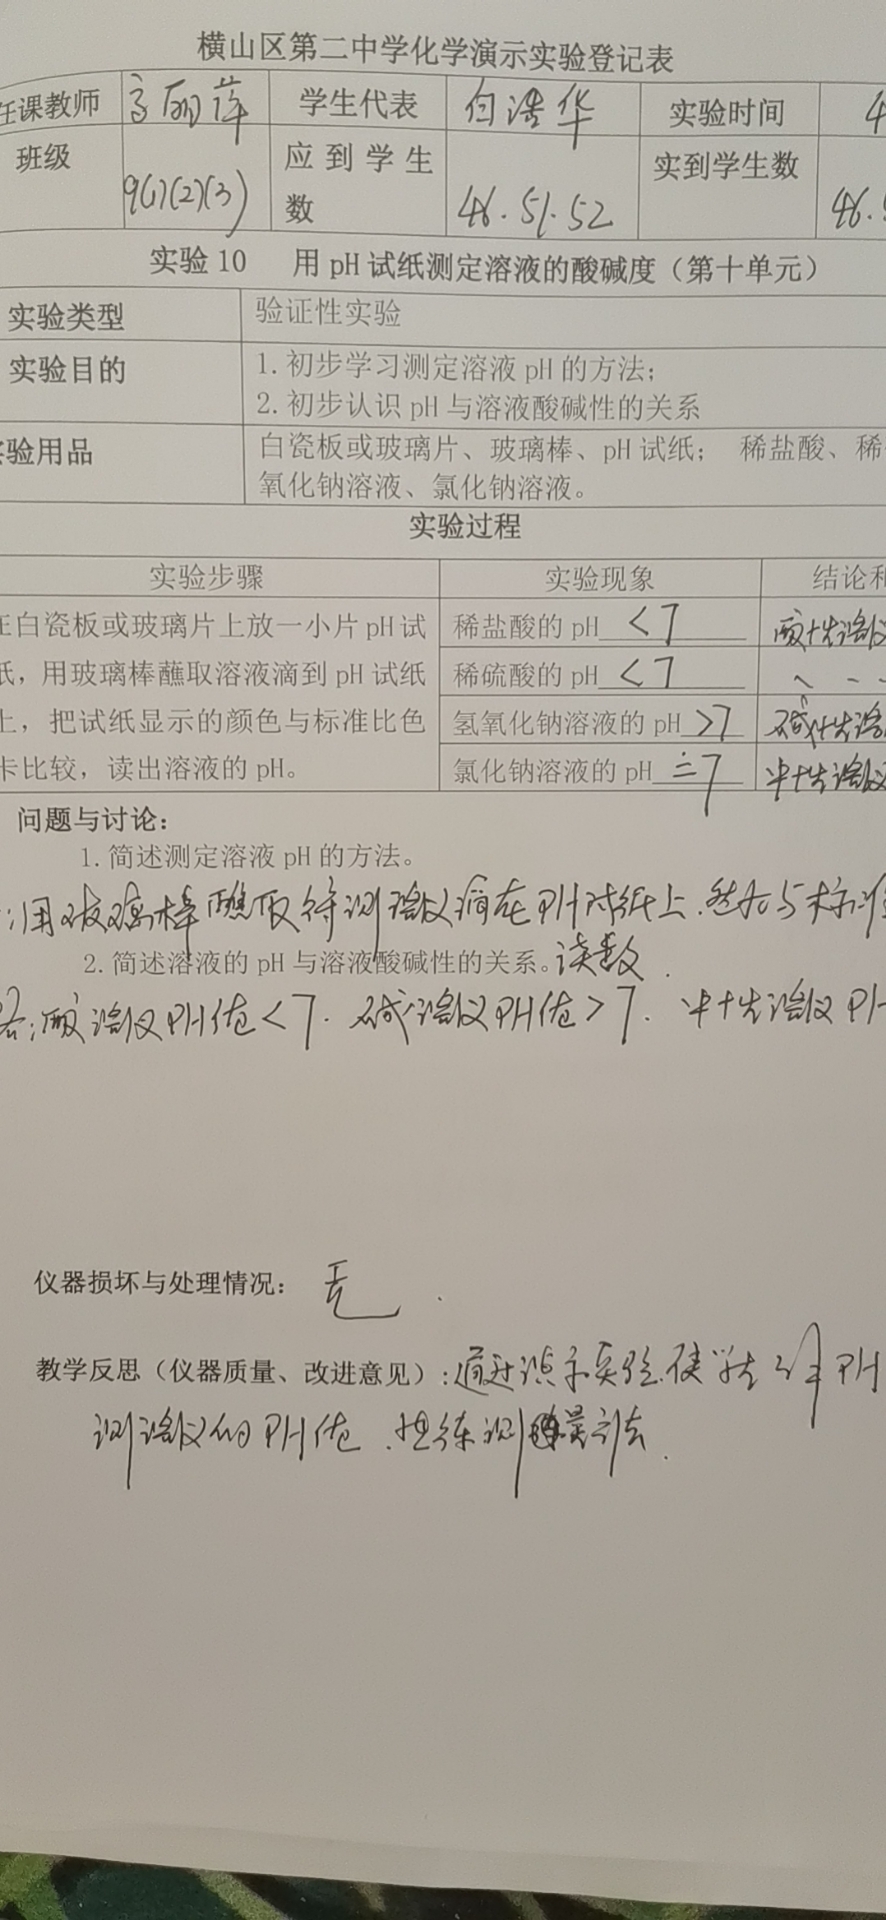 横山区第二中学化学演示实验登记表
任课教师 高丽萍 学生代表 白浩华 实验时间 4
班级 9(1)(2)(3) 应到学生数 46.51.52 实到学生数 46.5
实验10 用pH试纸测定溶液的酸碱度（第十单元）
实验类型 验证性实验
实验目的 1.初步学习测定溶液pH的方法；
2.初步认识pH与溶液酸碱性的关系
实验用品 白瓷板或玻璃片、玻璃棒、pH试纸； 稀盐酸、稀
氧化钠溶液、氯化钠溶液。
实验过程
实验步骤 实验现象 结论和
在白瓷板或玻璃片上放一小片pH试 稀盐酸的pH <7 酸性溶液
纸，用玻璃棒蘸取溶液滴到pH试纸 稀硫酸的pH <7
上，把试纸显示的颜色与标准比色 氢氧化钠溶液的pH >7 碱性溶
卡比较，读出溶液的pH。 氯化钠溶液的pH =7 中性溶液
问题与讨论：
1.简述测定溶液pH的方法。
:用玻璃棒蘸取待测溶液滴在PH试纸上.然后与标准
2.简述溶液的pH与溶液酸碱性的关系。读数.
答:酸溶液PH值<7.碱溶液PH值>7.中性溶液PH
仪器损坏与处理情况： 无.
教学反思（仪器质量、改进意见）:通过演示实验.使学生 PH
测溶液的PH值.  测量方法.